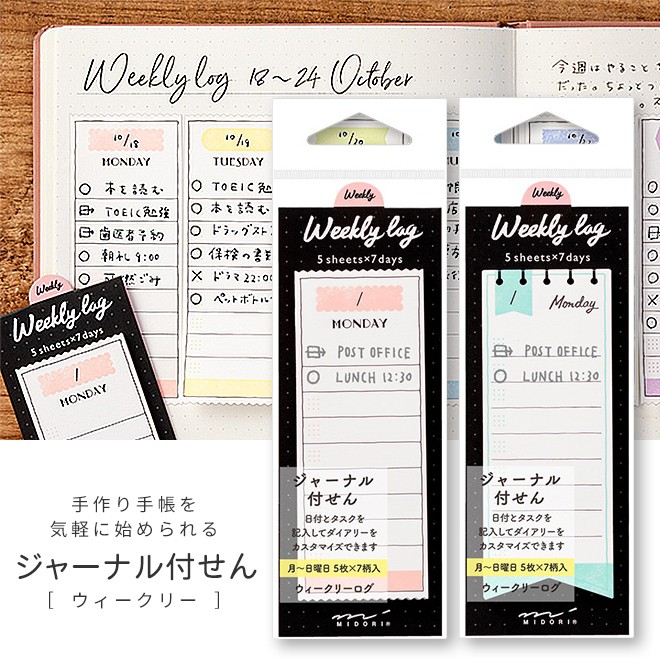 Weekly log 18～24 October
今週はやること
だった。ちょっと
10/18
MONDAY
本を読む
TOEIC勉強
歯医者予約
朝礼 9:00
可燃ごみ
10/19
TUESDAY
TOEIC勉
本を読む
ドラッグスト
保検の書
ドラマ 22:00
ペットボトル
Weekly
Weekly log
5 sheets×7days
/
MONDAY
10/20
Weekly
Weekly log
5 sheets×7days
/
MONDAY
POST OFFICE
LUNCH 12:30
ジャーナル
付せん
日付とタスクを
記入してダイアリーを
カスタマイズできます
月～日曜日 5枚×7柄入
ウィークリーログ
MIDORI®
Weekly
Weekly log
5 sheets×7days
/
Monday
POST OFFICE
LUNCH 12:30
ジャーナル
付せん
日付とタスクを
記入してダイアリーを
カスタマイズできます
月～日曜日 5枚×7柄入
ウィークリーログ
MIDORI®
手作り手帳を
気軽に始められる
ジャーナル付せん
[ ウィークリー ]